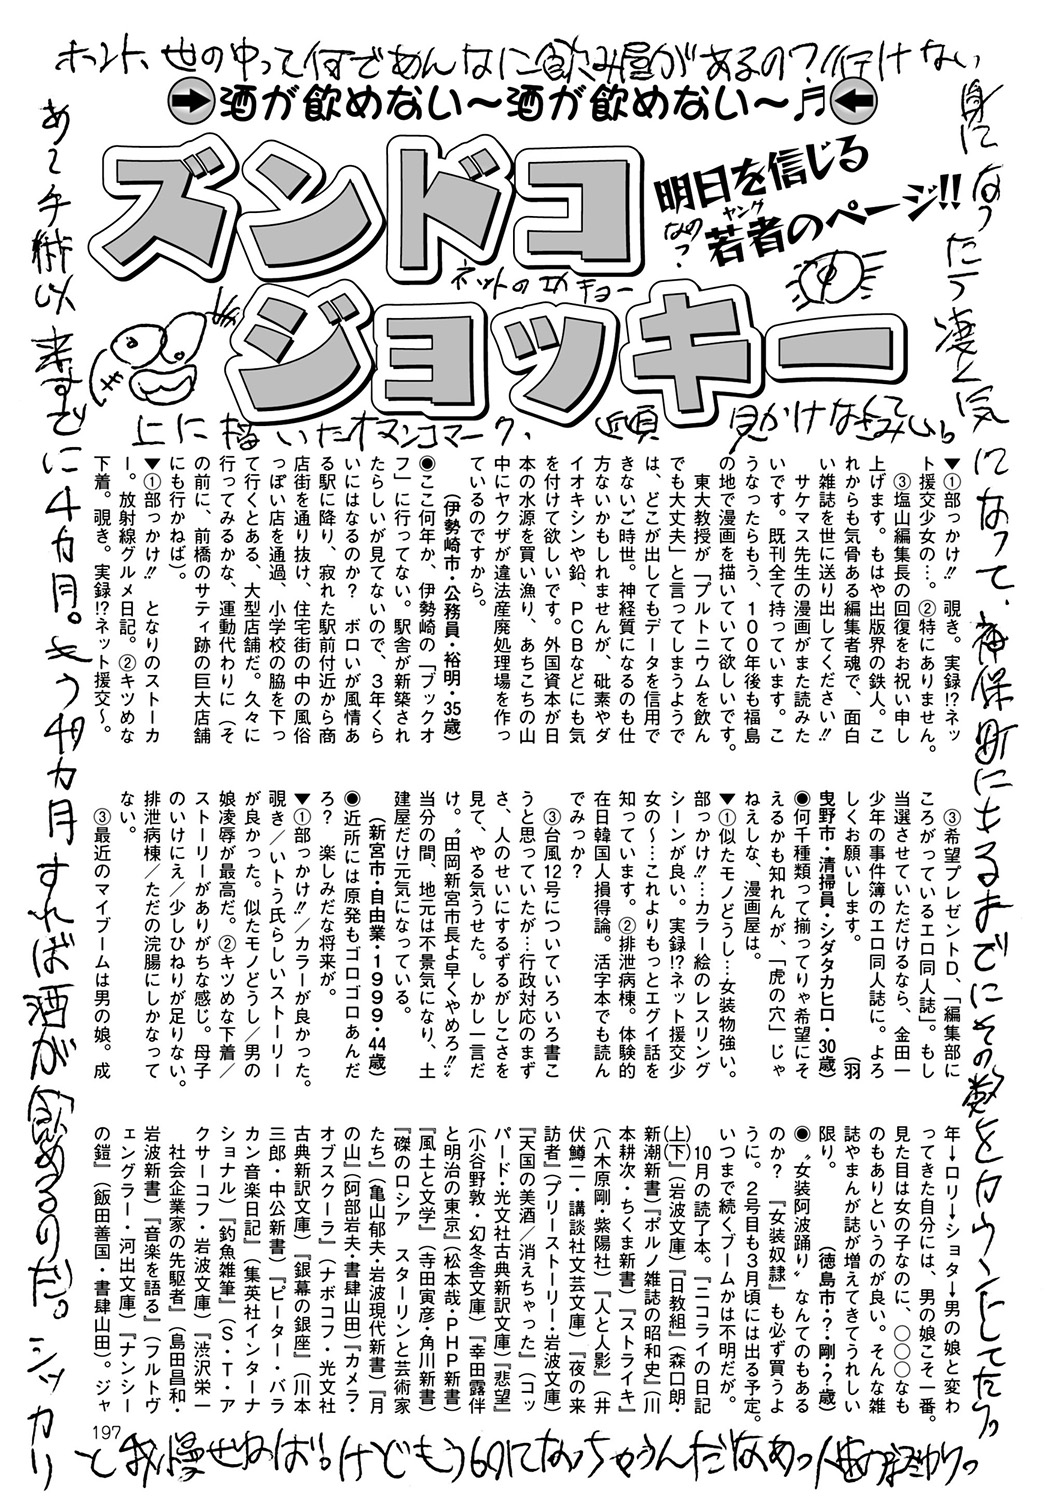 ホント、世の中って何であんなに飲み屋があるの?行けない
身になったって凄く気になって、神保町にもるまでにその数をカウントしてたり。
酒が飲めない〜酒が飲めない〜♬
ズンドコ
ジョッキー
明日を信じる
若者のページ!!
ヤング
なの?
ネットの
上に描いたオマンコマーク、近頃見かけな
あ〜手術以来すでに4カ月。もう4カ月すれば酒が飲めるりだ。シッカリ
と我慢せねば!けどもう60になっちゃうんだなあっ
▼①部っかけ!! 覗き。実録!?ネッ
ト援交少女の…。②特にありません。
③塩山編集長の回復をお祝い申し
上げます。もはや出版界の鉄人。こ
れからも気骨ある編集者魂で、面白
い雑誌を世に送り出してください!!
サケマス先生の漫画がまた読みた
いです。既刊全て持っています。こ
うなったらもう、100年後も福島
の地で漫画を描いていて欲しいです。
東大教授が「プルトニウムを飲ん
でも大丈夫」と言ってしまうようで
は、どこが出してもデータを信用で
きないご時世。神経質になるのも仕
方ないかもしれませんが、砒素やダ
イオキシンや鉛、PCBなどにも気
を付けて欲しいです。外国資本が日
本の水源を買い漁り、あちこちの山
中にヤクザが違法産廃処理場を作っ
ているのですから。
(伊勢崎市・公務員・裕明・35歳)
◉ここ何年か、伊勢崎の「ブックオ
フ」に行ってない。駅舎が新築され
たらしいが見てないので、3年くら
いにはなるのか? ボロいが風情あ
る駅に降り、寂れた駅前付近から商
店街を通り抜け、住宅街の中の風俗
っぽい店を通過、小学校の脇を下っ
て行くとある、大型店舗だ。久々に
行ってみるかな、運動代わりに(そ
の前に、前橋のサティ跡の巨大店舗
にも行かねば)。
▼①部っかけ!! となりのストーカ
ー。放射線グルメ日記。②キツめな
下着。覗き。実録!?ネット援交〜。
③希望プレゼントD、「編集部に
ころがっているエロ同人誌」。もし
当選させていただけるなら、金田一
少年の事件簿のエロ同人誌に。よろ
しくお願いします。 (羽
曳野市・清掃員・シダタカヒロ・30歳)
◉何千種類って揃ってりゃ希望にそ
えるかも知れんが、「虎の穴」じゃ
ねえしな、漫画屋は。
▼①似たモノどうし…女装物強い。
部っかけ!!…カラー絵のレスリング
シーンが良い。実録!?ネット援交少
女の〜…これよりもっとエグイ話を
知っています。②排泄病棟。体験的
在日韓国人損得論。活字本でも読ん
でみっか?
③台風12号についていろいろ書こ
うと思っていたが…行政対応のまず
さ、人のせいにするずるがしこさを
見て、やる気うせた。しかし一言だ
け。〝田岡新宮市長よ早くやめろ!!〟
当分の間、地元は不景気になり、土
建屋だけ元気になっている。
(新宮市・自由業・1999・44歳)
◉近所には原発もゴロゴロあんだ
ろ? 楽しみだな将来が。
▼①部っかけ!!/カラーが良かった。
覗き/いトう氏らしいストーリー
が良かった。似たモノどうし/男の
娘凌辱が最高だ。②キツめな下着/
ストーリーがありがちな感じ。母子
のいけにえ/少しひねりが足りない。
排泄病棟/ただの浣腸にしかなって
ない。
③最近のマイブームは男の娘。成
誌やまんが誌が増えてきてうれしい
限り。 (徳島市・?・剛・?歳)
◉〝女装阿波踊り〟なんてのもある
のか? 『女装奴隷』も必ず買うよ
うに。2号目も3月頃には出る予定。
いつまで続くブームかは不明だが。
10月の読了本。『ニコライの日記
(上)(下)』(岩波文庫)『日教組』(森口朗・
新潮新書)『ポルノ雑誌の昭和史』(川
本耕次・ちくま新書)『ストライキ』
(八木原剛・紫陽社)『人と人影』(井
伏鱒二・講談社文芸文庫)『夜の来
訪者』(プリーストリー・岩波文庫)
『天国の美酒/消えちゃった』(コッ
パード・光文社古典新訳文庫)『悲望』
(小谷野敦・幻冬舎文庫)『幸田露伴
と明治の東京』(松本哉・PHP新書)
『風土と文学』(寺田寅彦・角川新書)
『磔のロシア スターリンと芸術家
たち』(亀山郁夫・岩波現代新書)『月
の山』(阿部岩夫・書肆山田)『カメラ・
オブスクーラ』(ナボコフ・光文社
古典新訳文庫)『銀幕の銀座』(川本
三郎・中公新書)『ピーター・バラ
カン音楽日記』(集英社インターナ
ショナル)『釣魚雑筆』(S・T・ア
クサーコフ・岩波文庫)『渋沢栄一
社会企業家の先駆者』(島田昌和・
岩波新書)『音楽を語る』(フルトヴ
ェングラー・河出文庫)『ナンシー
の鎧』(飯田善国・書肆山田)。ジャ
197